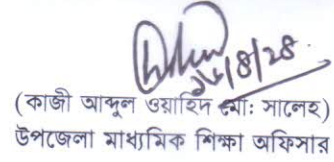 ১৬/৪/২৪
(কাজী আব্দুল ওয়াহিদ মোঃ সালেহ)
উপজেলা মাধ্যমিক শিক্ষা অফিসার